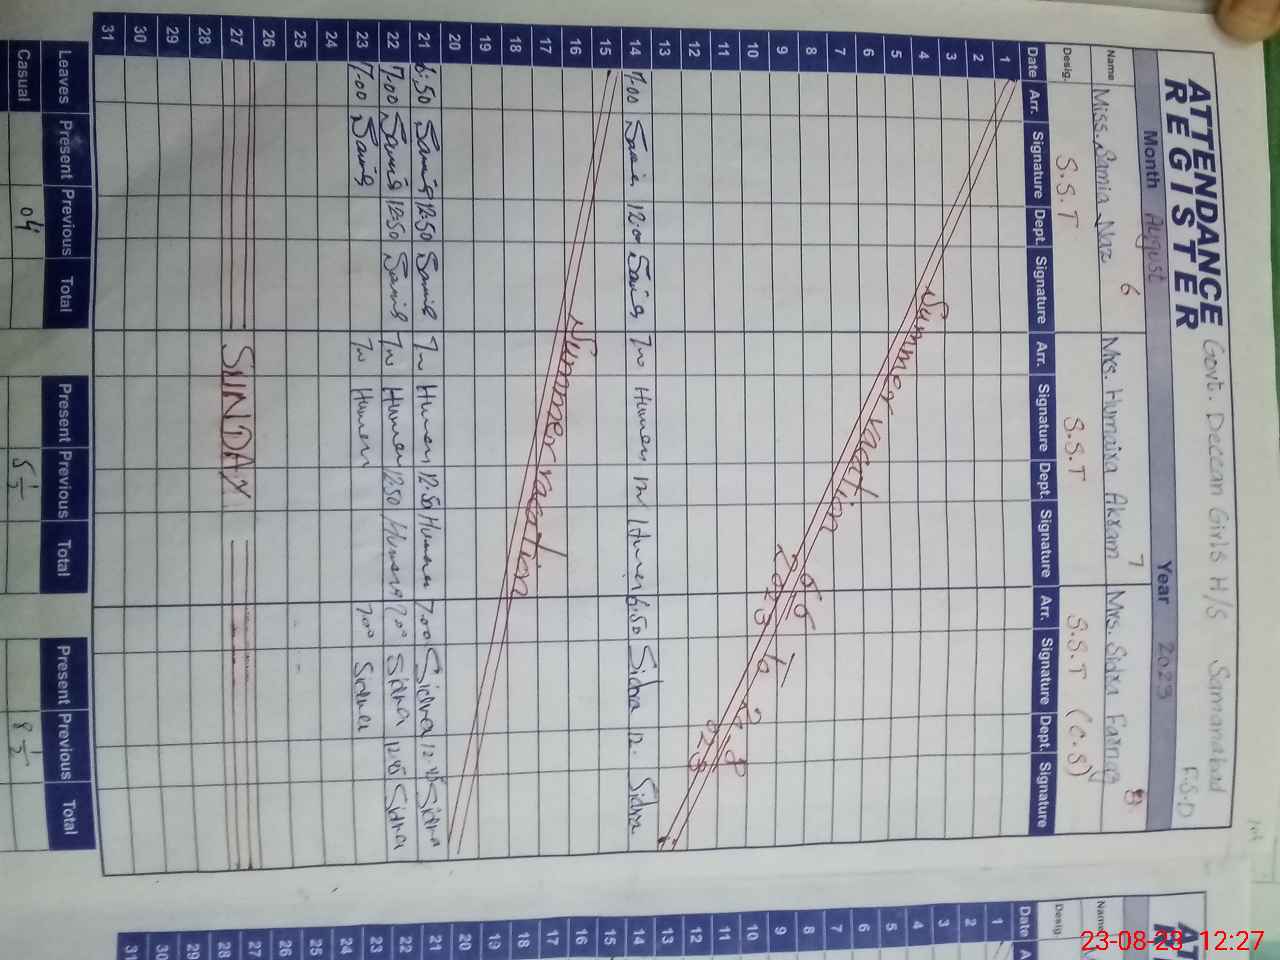 ATTENDANCE REGISTER Govt. Deccan Girls H/S Samanabad F.S.D
Month August Year 2023
Name Miss. Samia Naz 6 Mrs. Humaira Akram 7 Mrs. Sidra Farrag 8
Desig. S.S.T S.S.T S.S.T (C.S)
Date Arr. Signature Dept. Signature Arr. Signature Dept. Signature Arr. Signature Dept. Signature
1
2
3
4
5
6
7
8
9
10
11
12
13
Summer vacation
14 7.00 Samia 12.0 Samia Sidra 12. Sidra 6:50
15
16
17
18
19
20
Summer vacation
21 6:50 Samia 12:50 Samia 12:50 7.00 Sidra Sidra
22 7.00 Samia 12:50 Samia 12:50 Sidra Sidra
23 7.00 Samia 7.00 Sidra
24
25
26
27 SUNDAY
28
29
30
31
Leaves Present Previous Total Present Previous Total Present Previous Total
Casual 04 5 1/2 8 1/2
Date 1 2 3 4 5 6 7 8 9 10 11 12 13 14 15 16 17 18 19 20 21 22 23 24 25 26 27 28 29 30 31
Name
Desig.
23-08-23 12:27